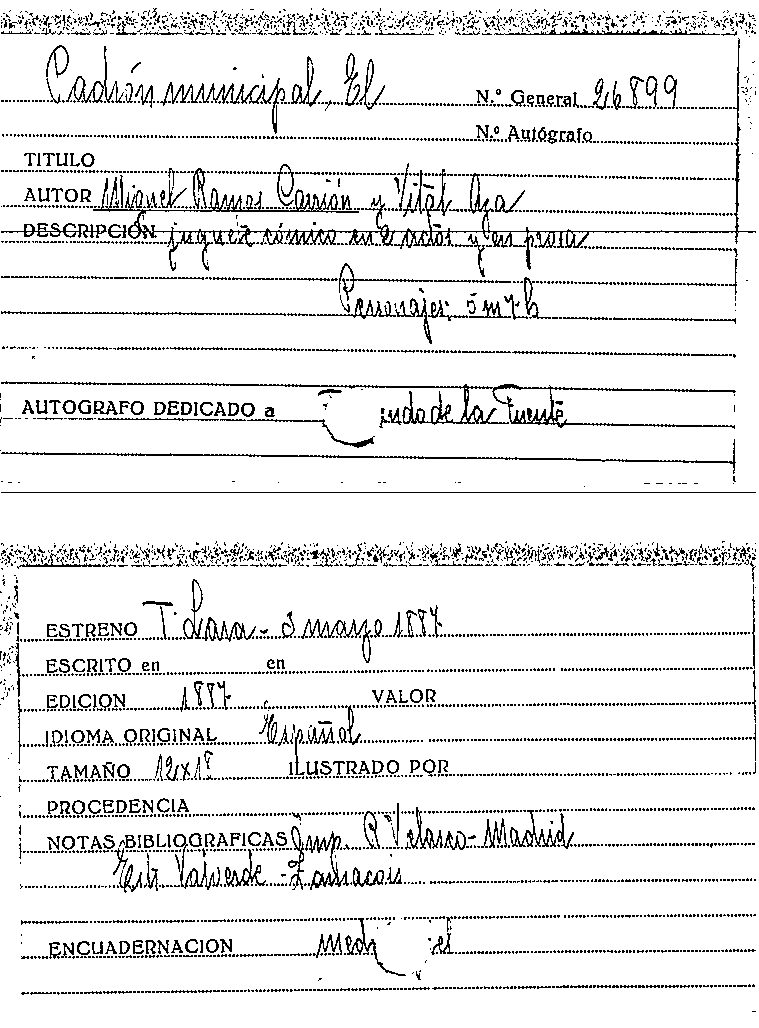 Padrón municipal, El
N.º General 26899
N.º Autógrafo
TITULO
AUTOR Miguel Ramos Carrión y Vital Aza
DESCRIPCIÓN juguete cómico en 2 actos y en prosa
Personajes: 5 m 7 h
AUTOGRAFO DEDICADO a de la Fuente
ESTRENO T. Lara - 3 marzo 1887
ESCRITO en en
EDICION 1887 VALOR
IDIOMA ORIGINAL Español
TAMAÑO 12x18 ILUSTRADO POR
PROCEDENCIA
NOTAS BIBLIOGRAFICAS Imp. R Velasco - Madrid
Valverde - Zamacois
ENCUADERNACION